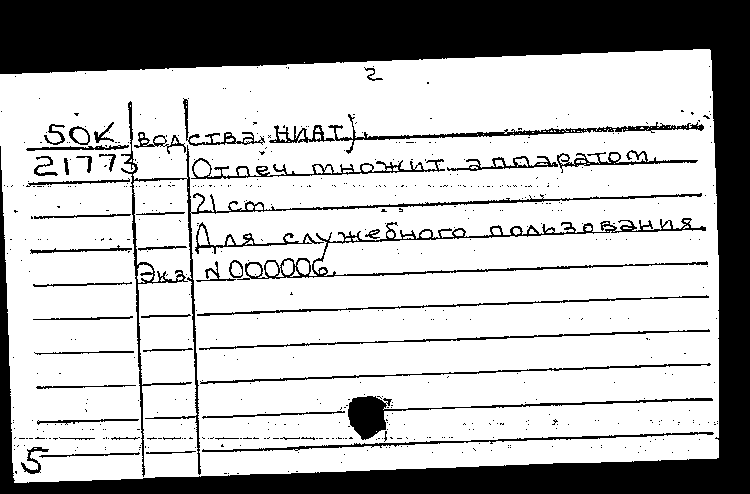 2
50К водства. НИАТ).
21773 Отпеч. множит. аппаратом.
21 ст.
Для служебного пользования.
Экз. N000006.
5